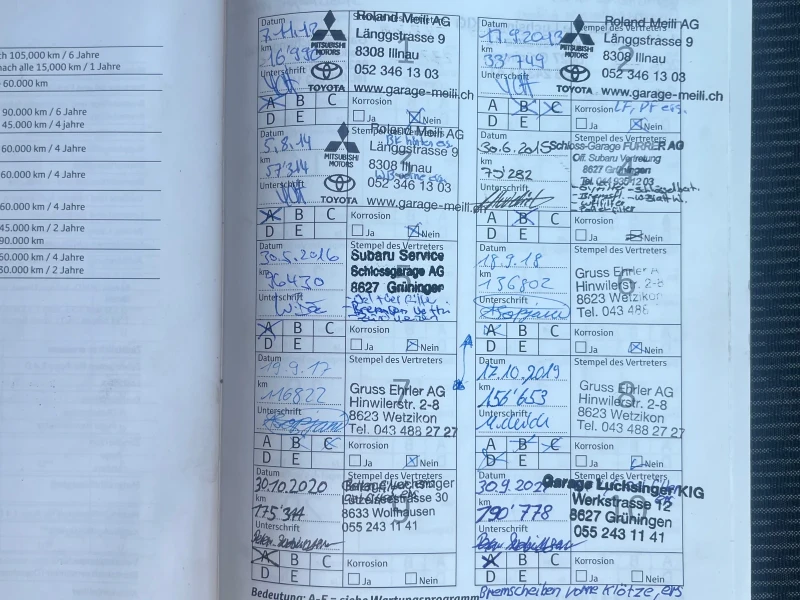 ch 105,000 km / 6 Jahre
nach alle 15,000 km / 1 Jahre
60.000 km
90.000 km / 6 Jahre
45.000 km / 4 jahre
60.000 km / 4 Jahre
60.000 km / 4 Jahre
60.000 km / 4 Jahre
45.000 km / 2 Jahre
90.000 km
60.000 km / 4 Jahre
30.000 km / 2 Jahre
Datum
7.11.12
km
16'990
Unterschrift
MITSUBISHI
MOTORS
TOYOTA
Roland Meili AG
Länggstrasse 9
8308 Illnau
052 346 13 03
www.garage-meili.ch
A B C
D E
Korrosion
Ja Nein
Datum
17.9.2013
km
33'749
Unterschrift
Stempel des Vertreters
MITSUBISHI
MOTORS
TOYOTA
Roland Meili AG
Länggstrasse 9
8308 Illnau
052 346 13 03
www.garage-meili.ch
A B C
D E
Korrosion
Ja Nein
Datum
5.8.14
km
57'314
Unterschrift
MITSUBISHI
MOTORS
TOYOTA
Roland Meili AG
Länggstrasse 9
8308 Illnau
052 346 13 03
www.garage-meili.ch
A B C
D E
Korrosion
Ja Nein
Datum
30.6.2015
km
75'282
Unterschrift
Stempel des Vertreters
Schloss-Garage FURRER AG
Off. Subaru Vertretung
8627 Grüningen
A B C
D E
Korrosion
Ja Nein
Datum
30.5.2016
km
96430
Unterschrift
Stempel des Vertreters
Subaru Service
Schlossgarage AG
8627 Grüningen
A B C
D E
Korrosion
Ja Nein
Datum
18.9.18
km
136802
Unterschrift
Stempel des Vertreters
6
Gruss Ehrler A
Hinwilerstr. 2-8
8623 Wetzikon
Tel. 043 488
A B C
D E
Korrosion
Ja Nein
Datum
19.9.17
km
116822
Unterschrift
Stempel des Vertreters
7
Gruss Ehrler AG
Hinwilerstr. 2-8
8623 Wetzikon
Tel. 043 488 27 27
A B C
D E
Korrosion
Ja Nein
Datum
17.10.2019
km
156'653
Unterschrift
Stempel des Vertreters
8
Gruss Ehrler AG
Hinwilerstr. 2-8
8623 Wetzikon
Tel. 043 488 27 27
A B C
D E
Korrosion
Ja Nein
Datum
30.10.2020
km
175'344
Unterschrift
Stempel des Vertreters
8633 Wolfhausen
055 243 11 41
A B C
D E
Korrosion
Ja Nein
Datum
30.9.2021
km
190'778
Unterschrift
Stempel des Vertreters
Garage Luchsinger/KIG
Werkstrasse 12
8627 Grüningen
055 243 11 41
A B C
D E
Korrosion
Ja Nein
Bremscheiben vorne Klötze, ers